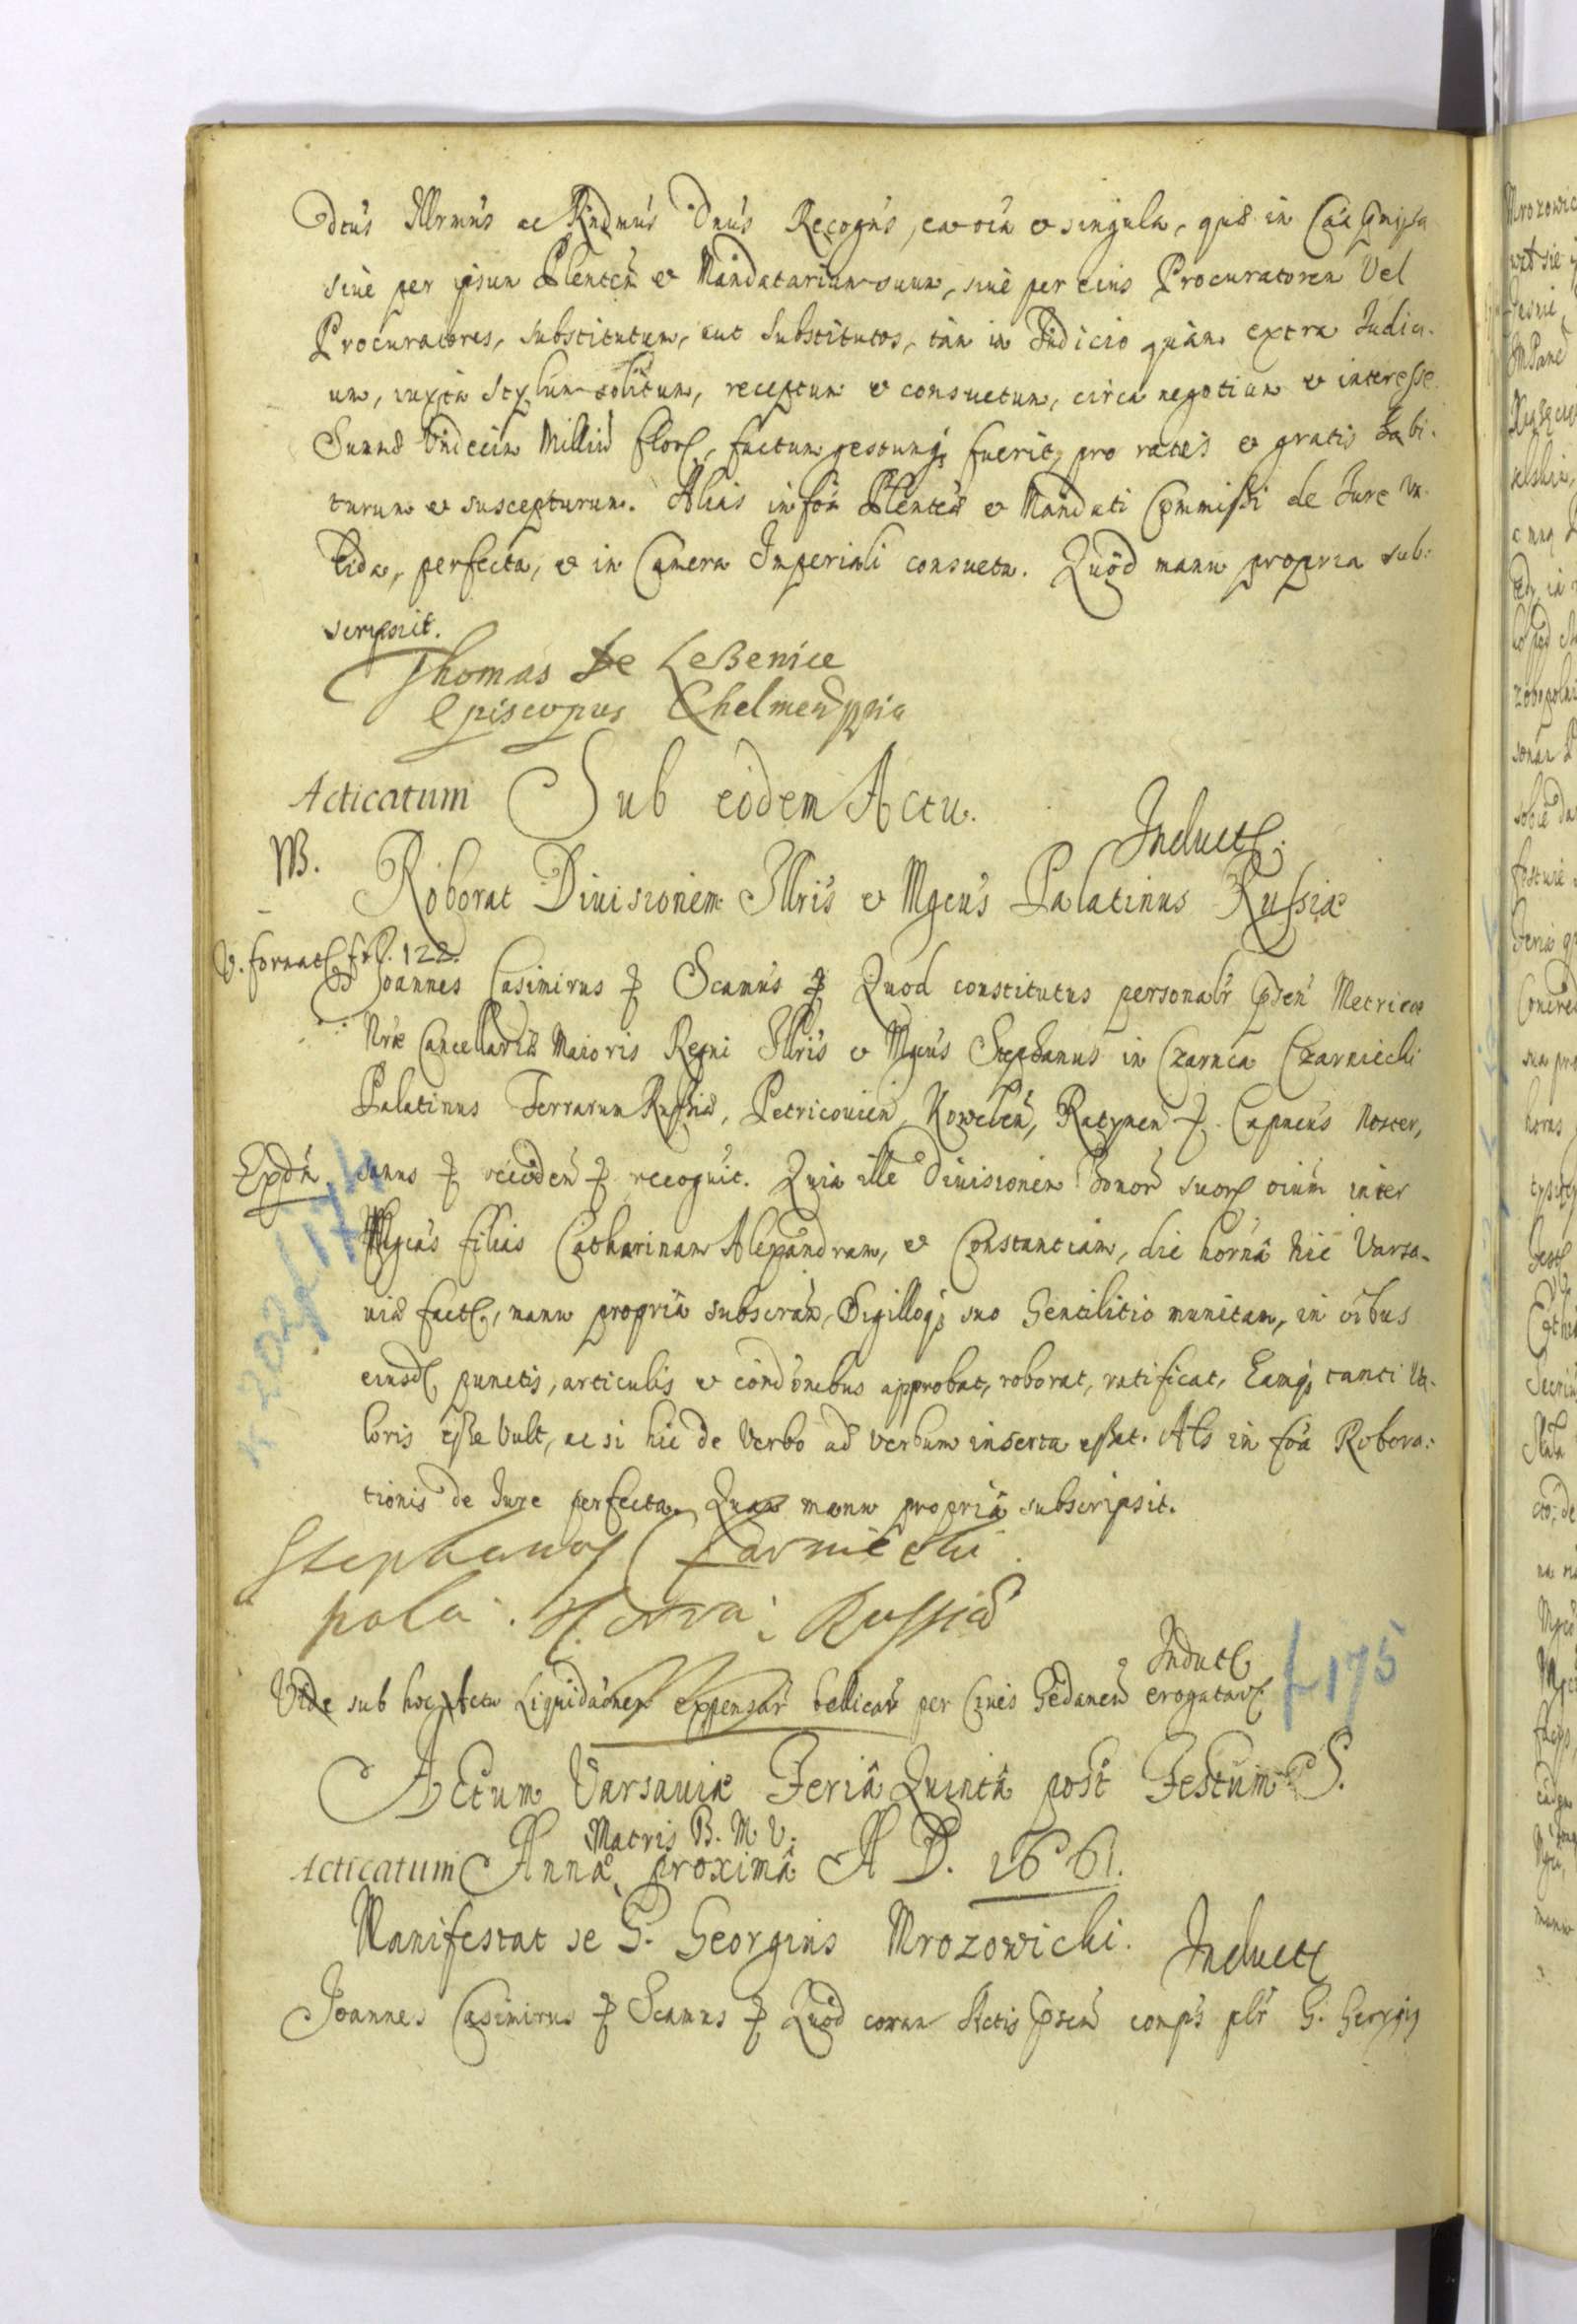 dcus Illrmus ac Rndmus Dnus Recogns, ea oia et singula, quae in Caa pmissa
siue per ipsum Plentem et Mandatarium suum, siue per eius Procuratorem Vel
Procuratores, substitutum, aut substitutos, tam in Iudicio quam extra Iudici-
um, iuxta stylum solitum, receptum et consuetum, circa negotium et interesse
Summae Vndecim Millium flor, factum gestumq fuerit, pro ratis et gratis habi-
turum et suscepturum. Alias in foa Plenteae et Mandati Commissi de Iure va-
lida, perfecta, et in Camera Imperiali consueta. Quod manu propria sub-
scripsit.
Thomas de Lezenice
Episcopus Chelmensis
Acticatum Sub eodem Actu.
Induct.
NB. Roborat Diuisionem Illris et Mgcus Palatinus Russiae
V. format fol. 122.
Joannes Casimirus Scamus Quod constitutus personalr psen Metricae
Nrae Cancellariae Maioris Regni Illris et Mgcus Stephanus in Czarnca Czarniecki
Palatinus Terrarum Russiae, Petricouien, Kowelen, Ratynen Capneus Noster,
Expdn. sanus recoguit. Quia ille Diuisionem Bonor suor oium inter
Mgcas filias Catharinam Alexandram, et Constantiam, die horna hic Varsa-
uiae fact, manu propria subscram, Sigilloq suo Gentilitio munitam, in oibus
eiusd punctis, articulis et condonibus approbat, roborat, ratificat, Eamq tanti Va-
loris esse Vult, ac si hic de Verbo ad verbum inserta esset. Als in foa Robora-
tionis de Iure perfecta. Quam manu propria subscripsit.
Stephanus Czarniecki
pala. Russiae
Induct
Vide sub hoc Actu Liquidaonem expensar bellicar per Ciues Gedanen erogatar
f 175
Actum Varsauiae Feria Quinta post Festum S.
Matris B. M. V.
Acticatum Annae proxima A D. 1661.
Manifestat se G. Georgius Mrozowicki. Induct
Joannes Casimirus Scamus Quod coram Actis psen comps plr G. Georgius